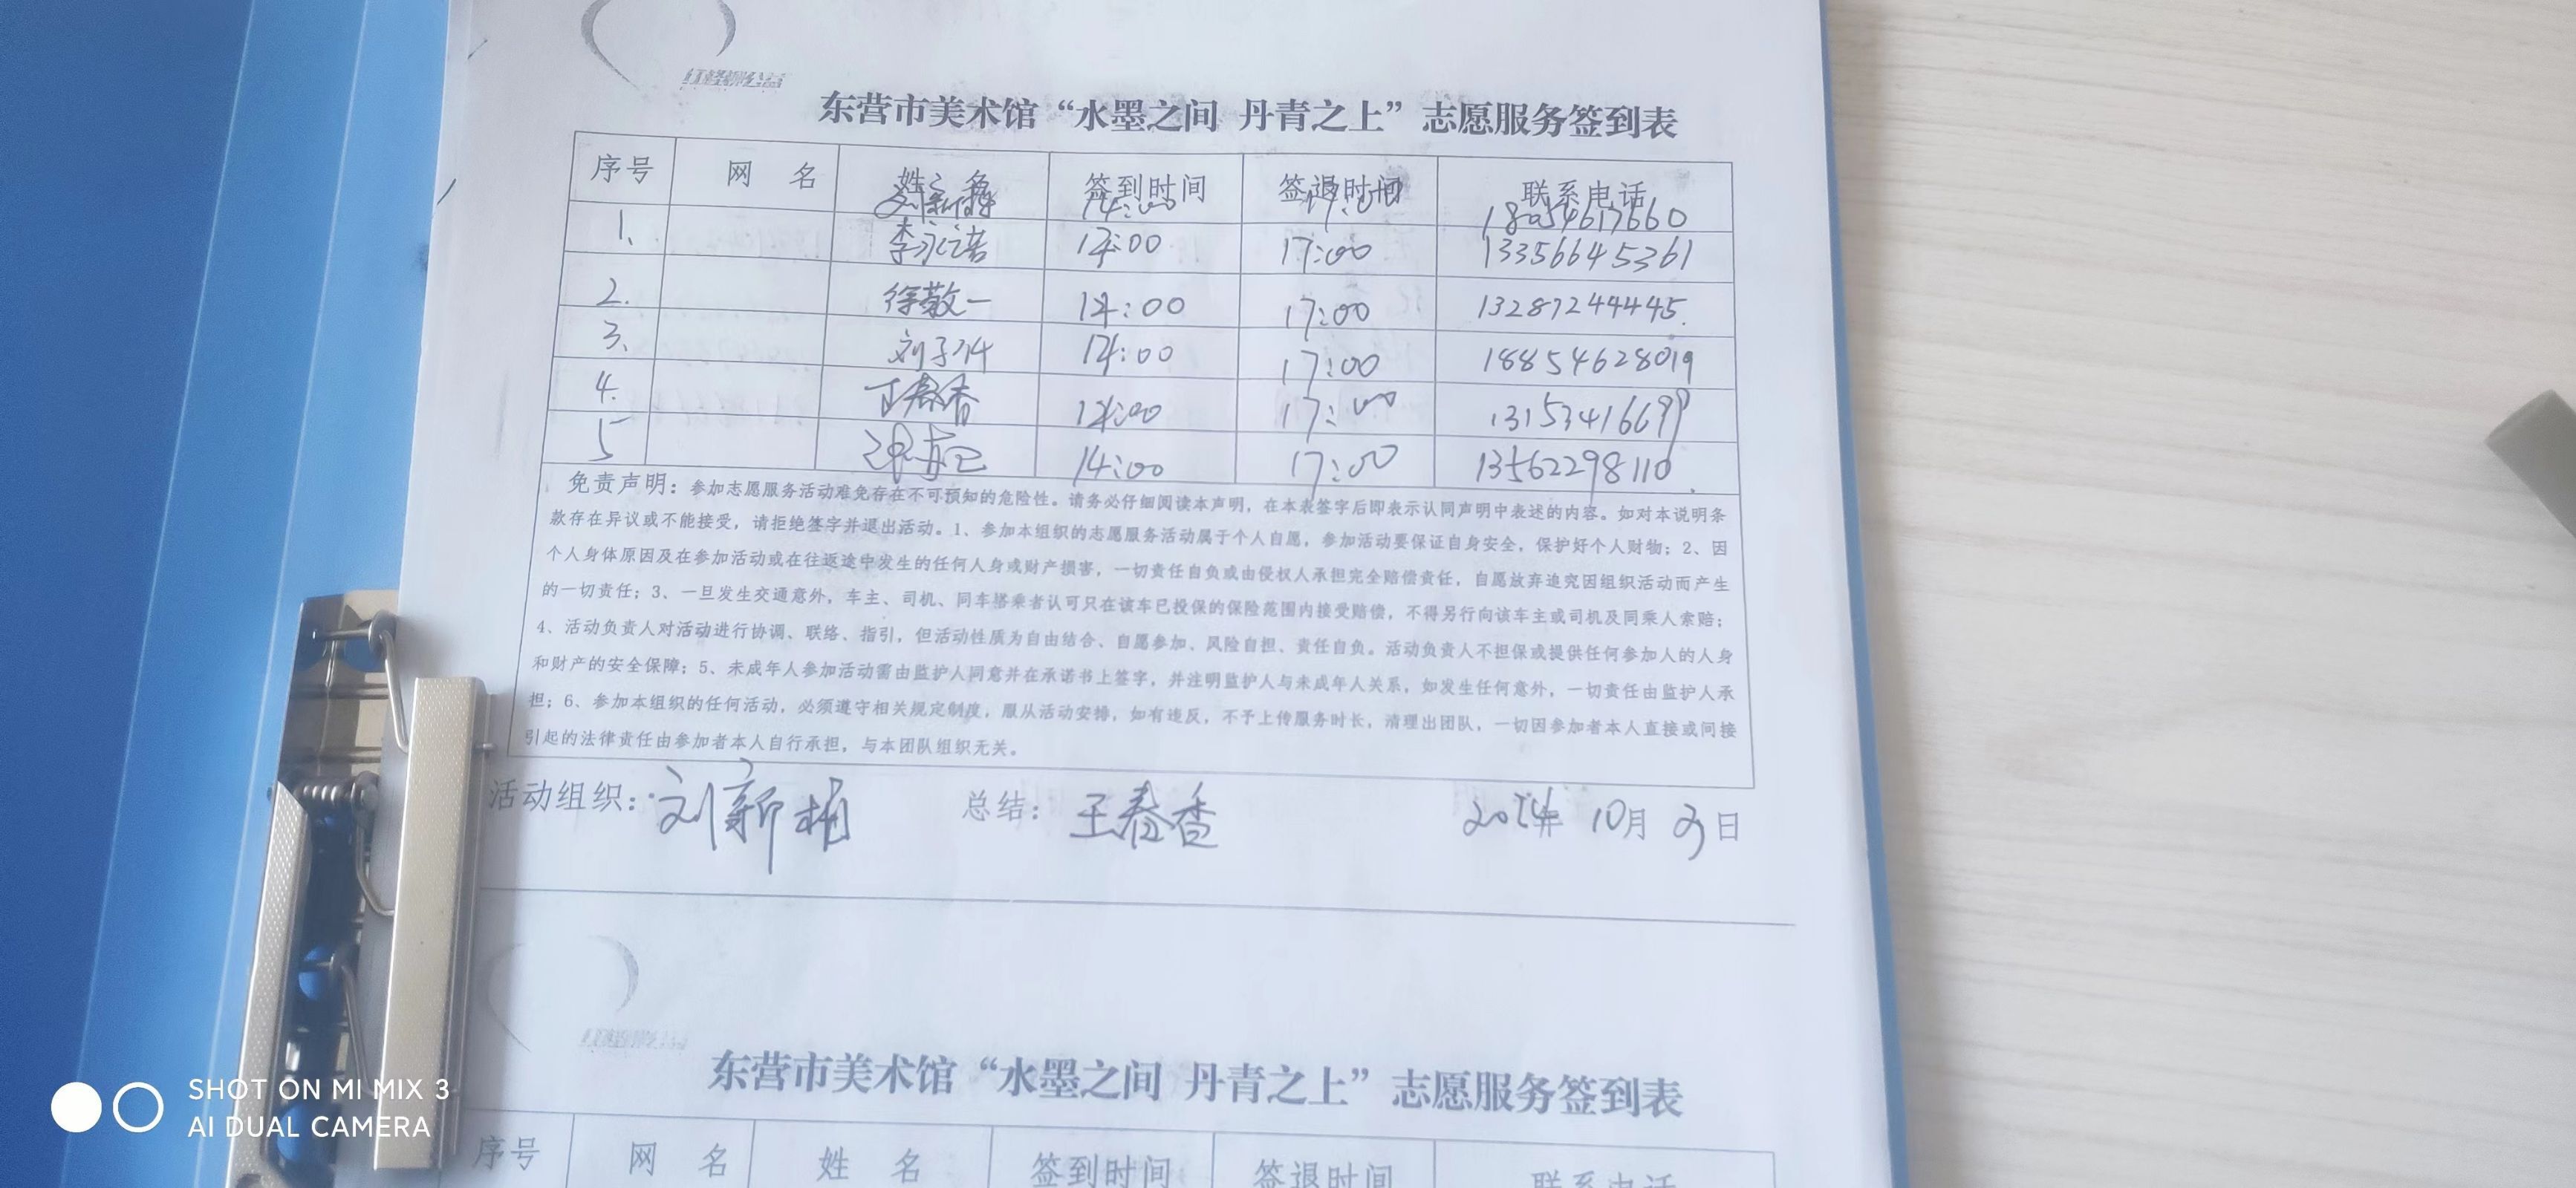 红柽柳公益
东营市美术馆“水墨之间 丹青之上”志愿服务签到表
序号 网 名 姓 名 签到时间 签退时间 联系电话
14:00 17:00 18054617660
1、 李永诺 14:00 17:00 13356645361
2. 徐敬一 14:00 17:00 13287244445.
3、 刘子 14:00 17:00 18854628019
4. 王春香 14:00 17:00 13153416699
5 14:00 17:00 13562298110
免责声明：参加志愿服务活动难免存在不可预知的危险性。请务必仔细阅读本声明，在本表签字后即表示认同声明中表述的内容。如对本说明条
款存在异议或不能接受，请拒绝签字并退出活动。1、参加本组织的志愿服务活动属于个人自愿，参加活动要保证自身安全，保护好个人财物；2、因
个人身体原因及在参加活动或在往返途中发生的任何人身或财产损害，一切责任自负或由侵权人承担完全赔偿责任，自愿放弃追究因组织活动而产生
的一切责任；3、一旦发生交通意外，车主、司机、同车搭乘者认可只在该车已投保的保险范围内接受赔偿，不得另行向该车主或司机及同乘人索赔；
4、活动负责人对活动进行协调、联络、指引，但活动性质为自由结合、自愿参加、风险自担、责任自负。活动负责人不担保或提供任何参加人的人身
和财产的安全保障；5、未成年人参加活动需由监护人同意并在承诺书上签字，并注明监护人与未成年人关系，如发生任何意外，一切责任由监护人承
担；6、参加本组织的任何活动，必须遵守相关规定制度，服从活动安排，如有违反，不予上传服务时长，清理出团队，一切因参加者本人直接或间接
引起的法律责任由参加者本人自行承担，与本团队组织无关。
活动组织： 刘新 总结： 王春香 年 10月 日
东营市美术馆“水墨之间 丹青之上”志愿服务签到表
序号 网 名 姓 名 签到时间 签退时间 联系电话
SHOT ON MI MIX 3
AI DUAL CAMERA